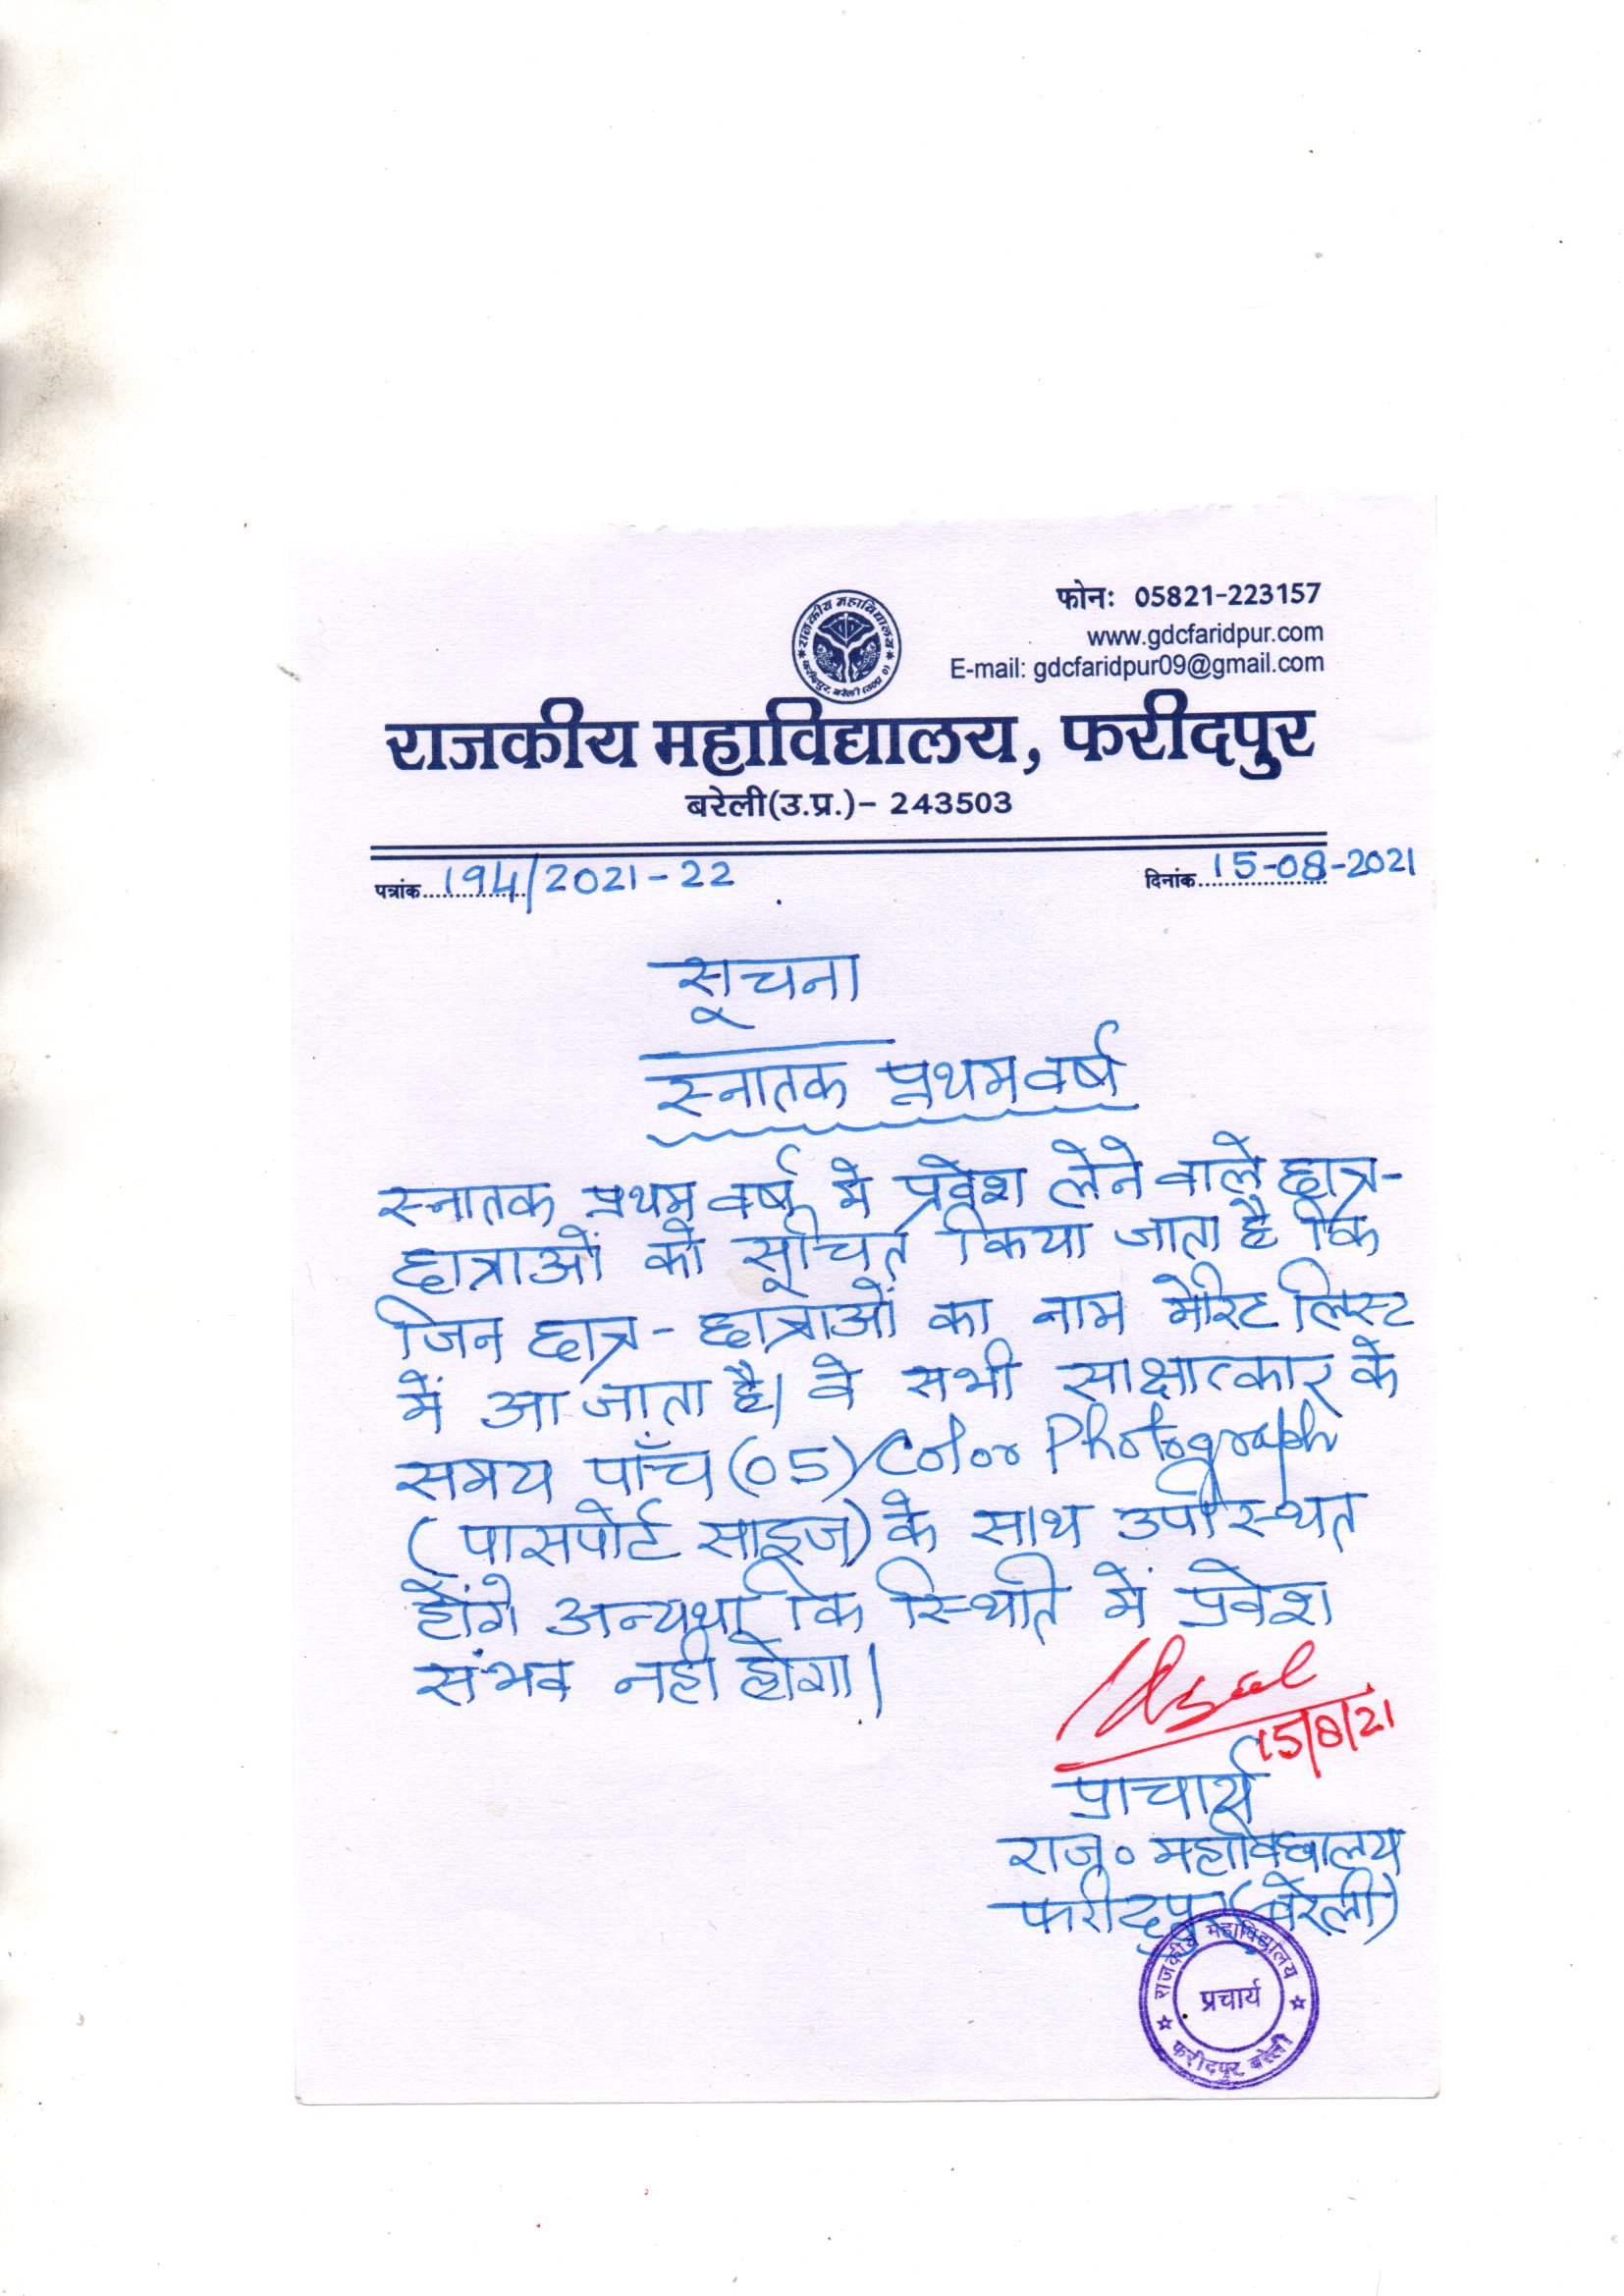 फोनः 05821-223157
www.gdcfaridpur.com
E-mail: gdcfaridpur09@gmail.com
राजकीय महाविद्यालय
फरीदपुर, बरेली (उ०प्र०)
राजकीय महाविद्यालय, फरीदपुर
बरेली(उ.प्र.)- 243503
पत्रांक 194/2021-22 दिनांक 15-08-2021
सूचना
स्नातक प्रथम वर्ष
स्नातक प्रथम वर्ष मे प्रवेश लेने वाले छात्र-
छात्राओं को सूचित किया जाता है कि
जिन छात्र-छात्राओं का नाम मेरिट लिस्ट
में आ जाता है। वे सभी साक्षात्कार के
समय पाँच (05) Color Photograph
(पासपोर्ट साइज) के साथ उपस्थित
होंगे अन्यथा कि स्थिति में प्रवेश
संभव नही होगा।
15/8/21
प्राचार्य
राज० महाविद्यालय
फरीदपुर (बरेली)
राजकीय महाविद्यालय
प्रचार्य
फरीदपुर, बरेली